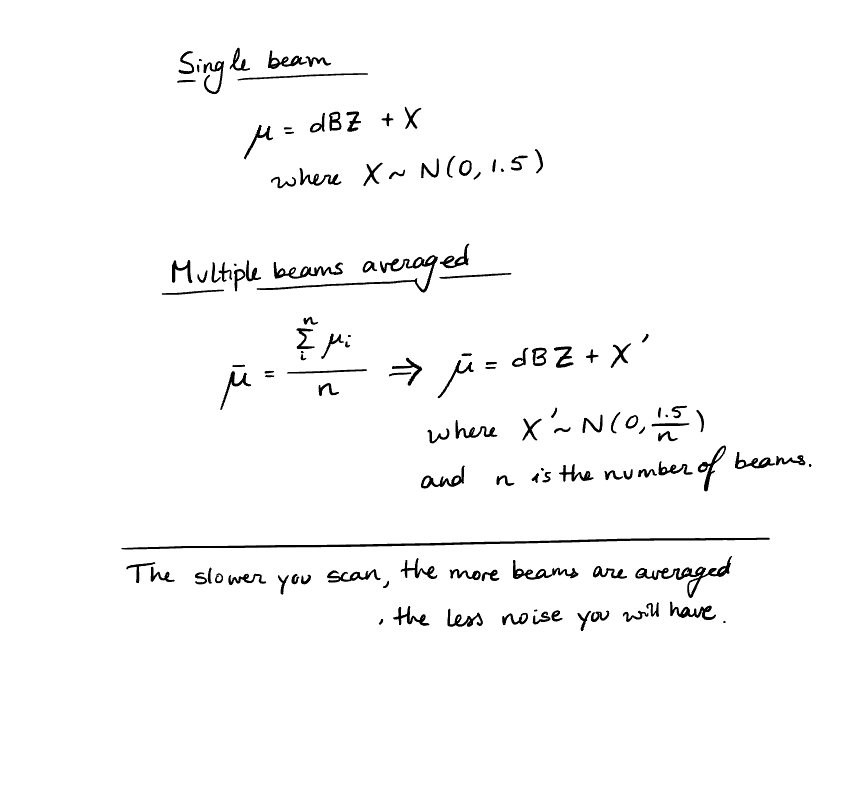 Single beam
μ = dBZ + X
where X ~ N(0, 1.5)
Multiple beams averaged
μ̄ = \frac{\sum_{i}^{n} μ_i}{n} ⇒ μ̄ = dBZ + X′
where X′ ~ N(0, \frac{1.5}{n})
and n is the number of beams.
The slower you scan, the more beams are averaged
, the less noise you will have.